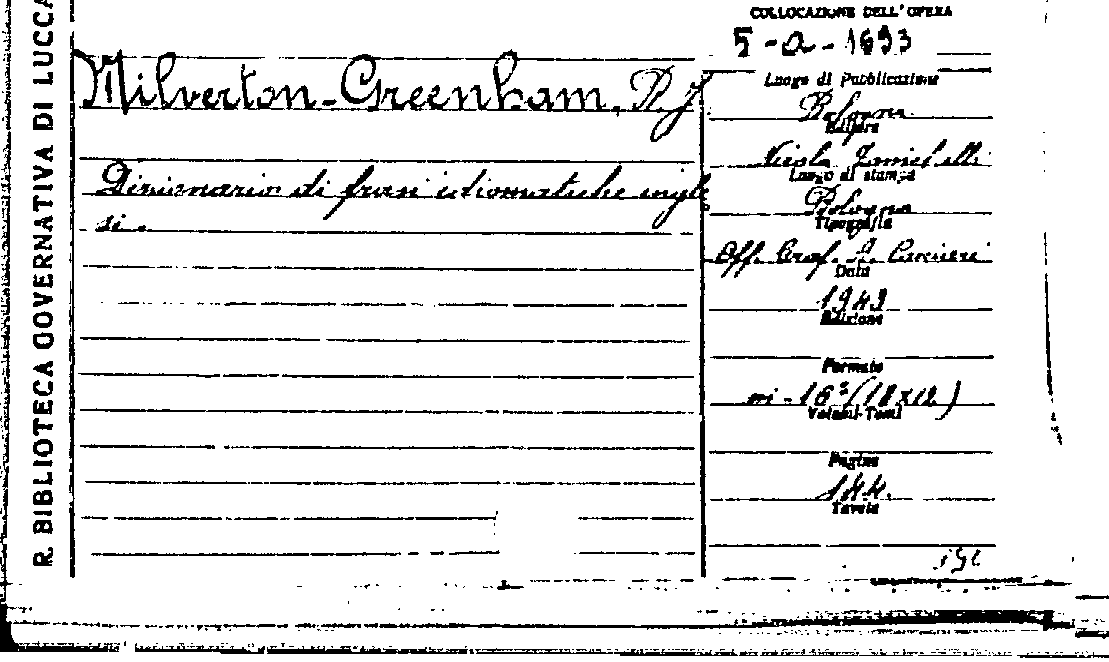 R. BIBLIOTECA GOVERNATIVA DI LUCCA
Milverton-Greenham, R. J.
Dizionario di frasi idiomatiche ingle
si.
COLLOCAZIONE DELL'OPERA
5-a-1693
Luogo di Pubblicazione
Bologna
Editore
Nicola Zanichelli
Luogo di stampa
Bologna
Tipografia
Off. Graf. A. Cacciari
Data
1943
Edizione
Formato
in-16° (18x12)
Volumi-Tomi
Pagine
144.
Tavole